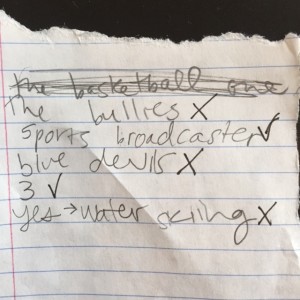 the basketball one
The bullies X
sports broadcaster ✓
blue devils X
3 ✓
yes → water skiing X